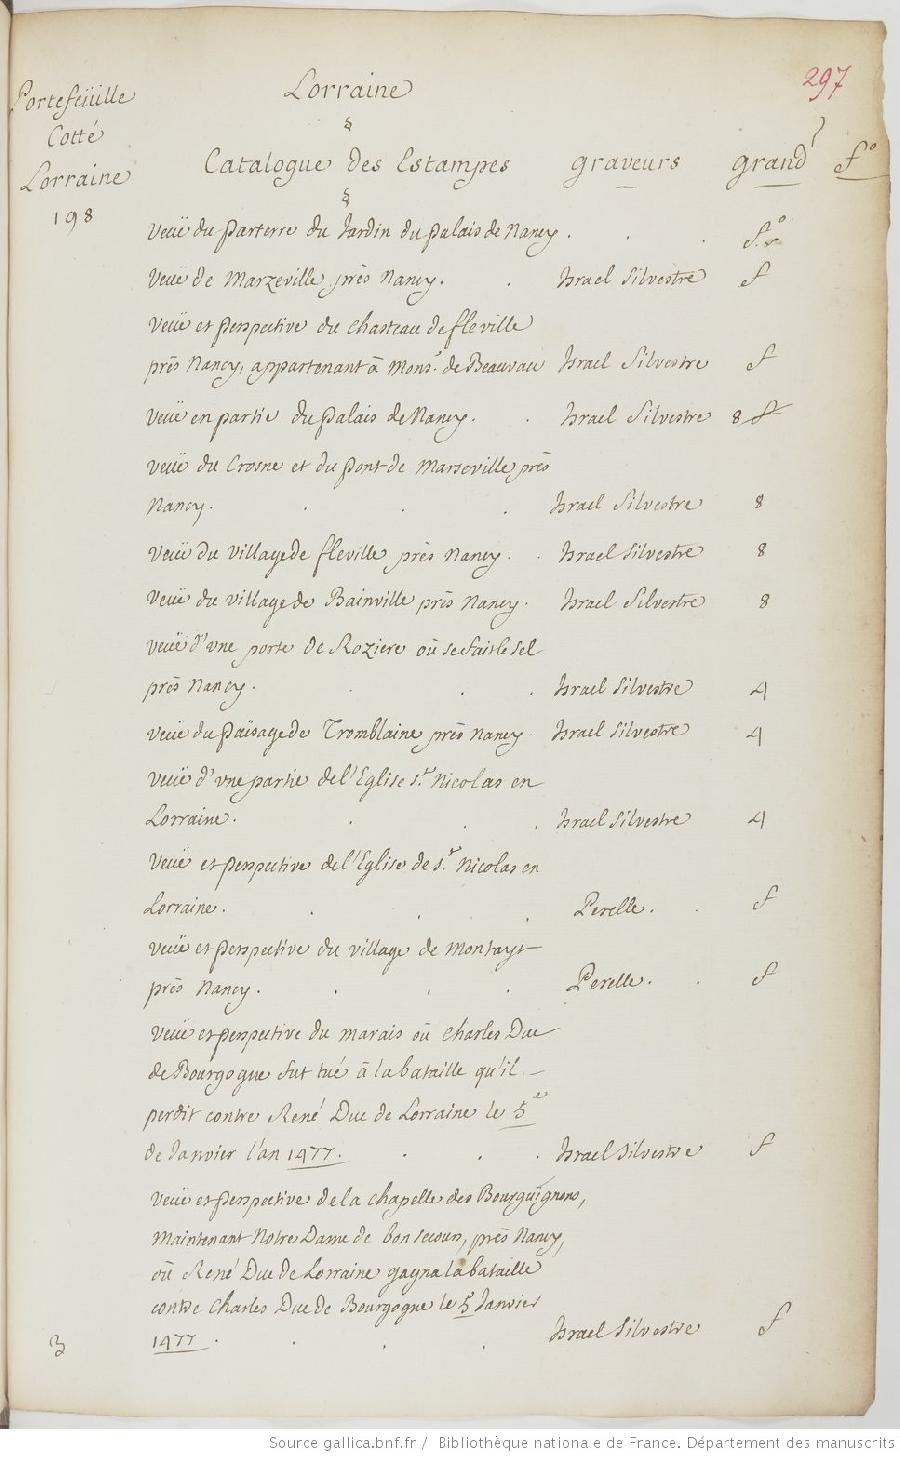 297
Portefeüille
Cotté
Lorraine
198
Lorraine
Catalogue des Estampes graveurs grand^r f.°
veuë du parterre du Jardin du palais de Nancy . . . f.°
veuë de Marzeville, près Nancy. . Israel Silvestre f
veuë et perspective du chasteau de fleville
près Nancy, appartenant à Mons.^r de Beauvau Israel Silvestre f
veuë en partie du palais de Nancy. . Israel Silvestre 8
veuë du Crosne et du pont de Marseville près
Nancy. . . . Israel Silvestre 8
veuë du village de fleville près Nancy . . Israel Silvestre 8
veuë du village de Bainville près Nancy. Israel Silvestre 8
veuë d'une porte de Roziere où se fait le sel
près Nancy. . . . Israel Silvestre 4
veuë du païsage de Tromblaine près Nancy Israel Silvestre 4
veuë d'une partie de l'Eglise s.^t Nicolas en
Lorraine. . . . Israel Silvestre 4
veuë et perspective de l'Eglise de s.^t Nicolas en
Lorraine. . . . Perelle. . f
veuë et perspective du village de
près Nancy. . . . Perelle. . f
veuë et perspective du marais où Charles Duc
de Bourgogne fut tué à la bataille qu'il
perdit contre René Duc de Lorraine le 5
de Janvier l'an 1477. . . . Israel Silvestre f
veuë et perspective de la chapelle des Bourguignons,
Maintenant Notre Dame de bon secours, près Nancy,
où René Duc de Lorraine gagna la bataille
contre Charles Duc de Bourgogne le 5 Janvier
1477. . . . . Israel Silvestre f
3
Source gallica.bnf.fr / Bibliothèque nationale de France. Département des manuscrits